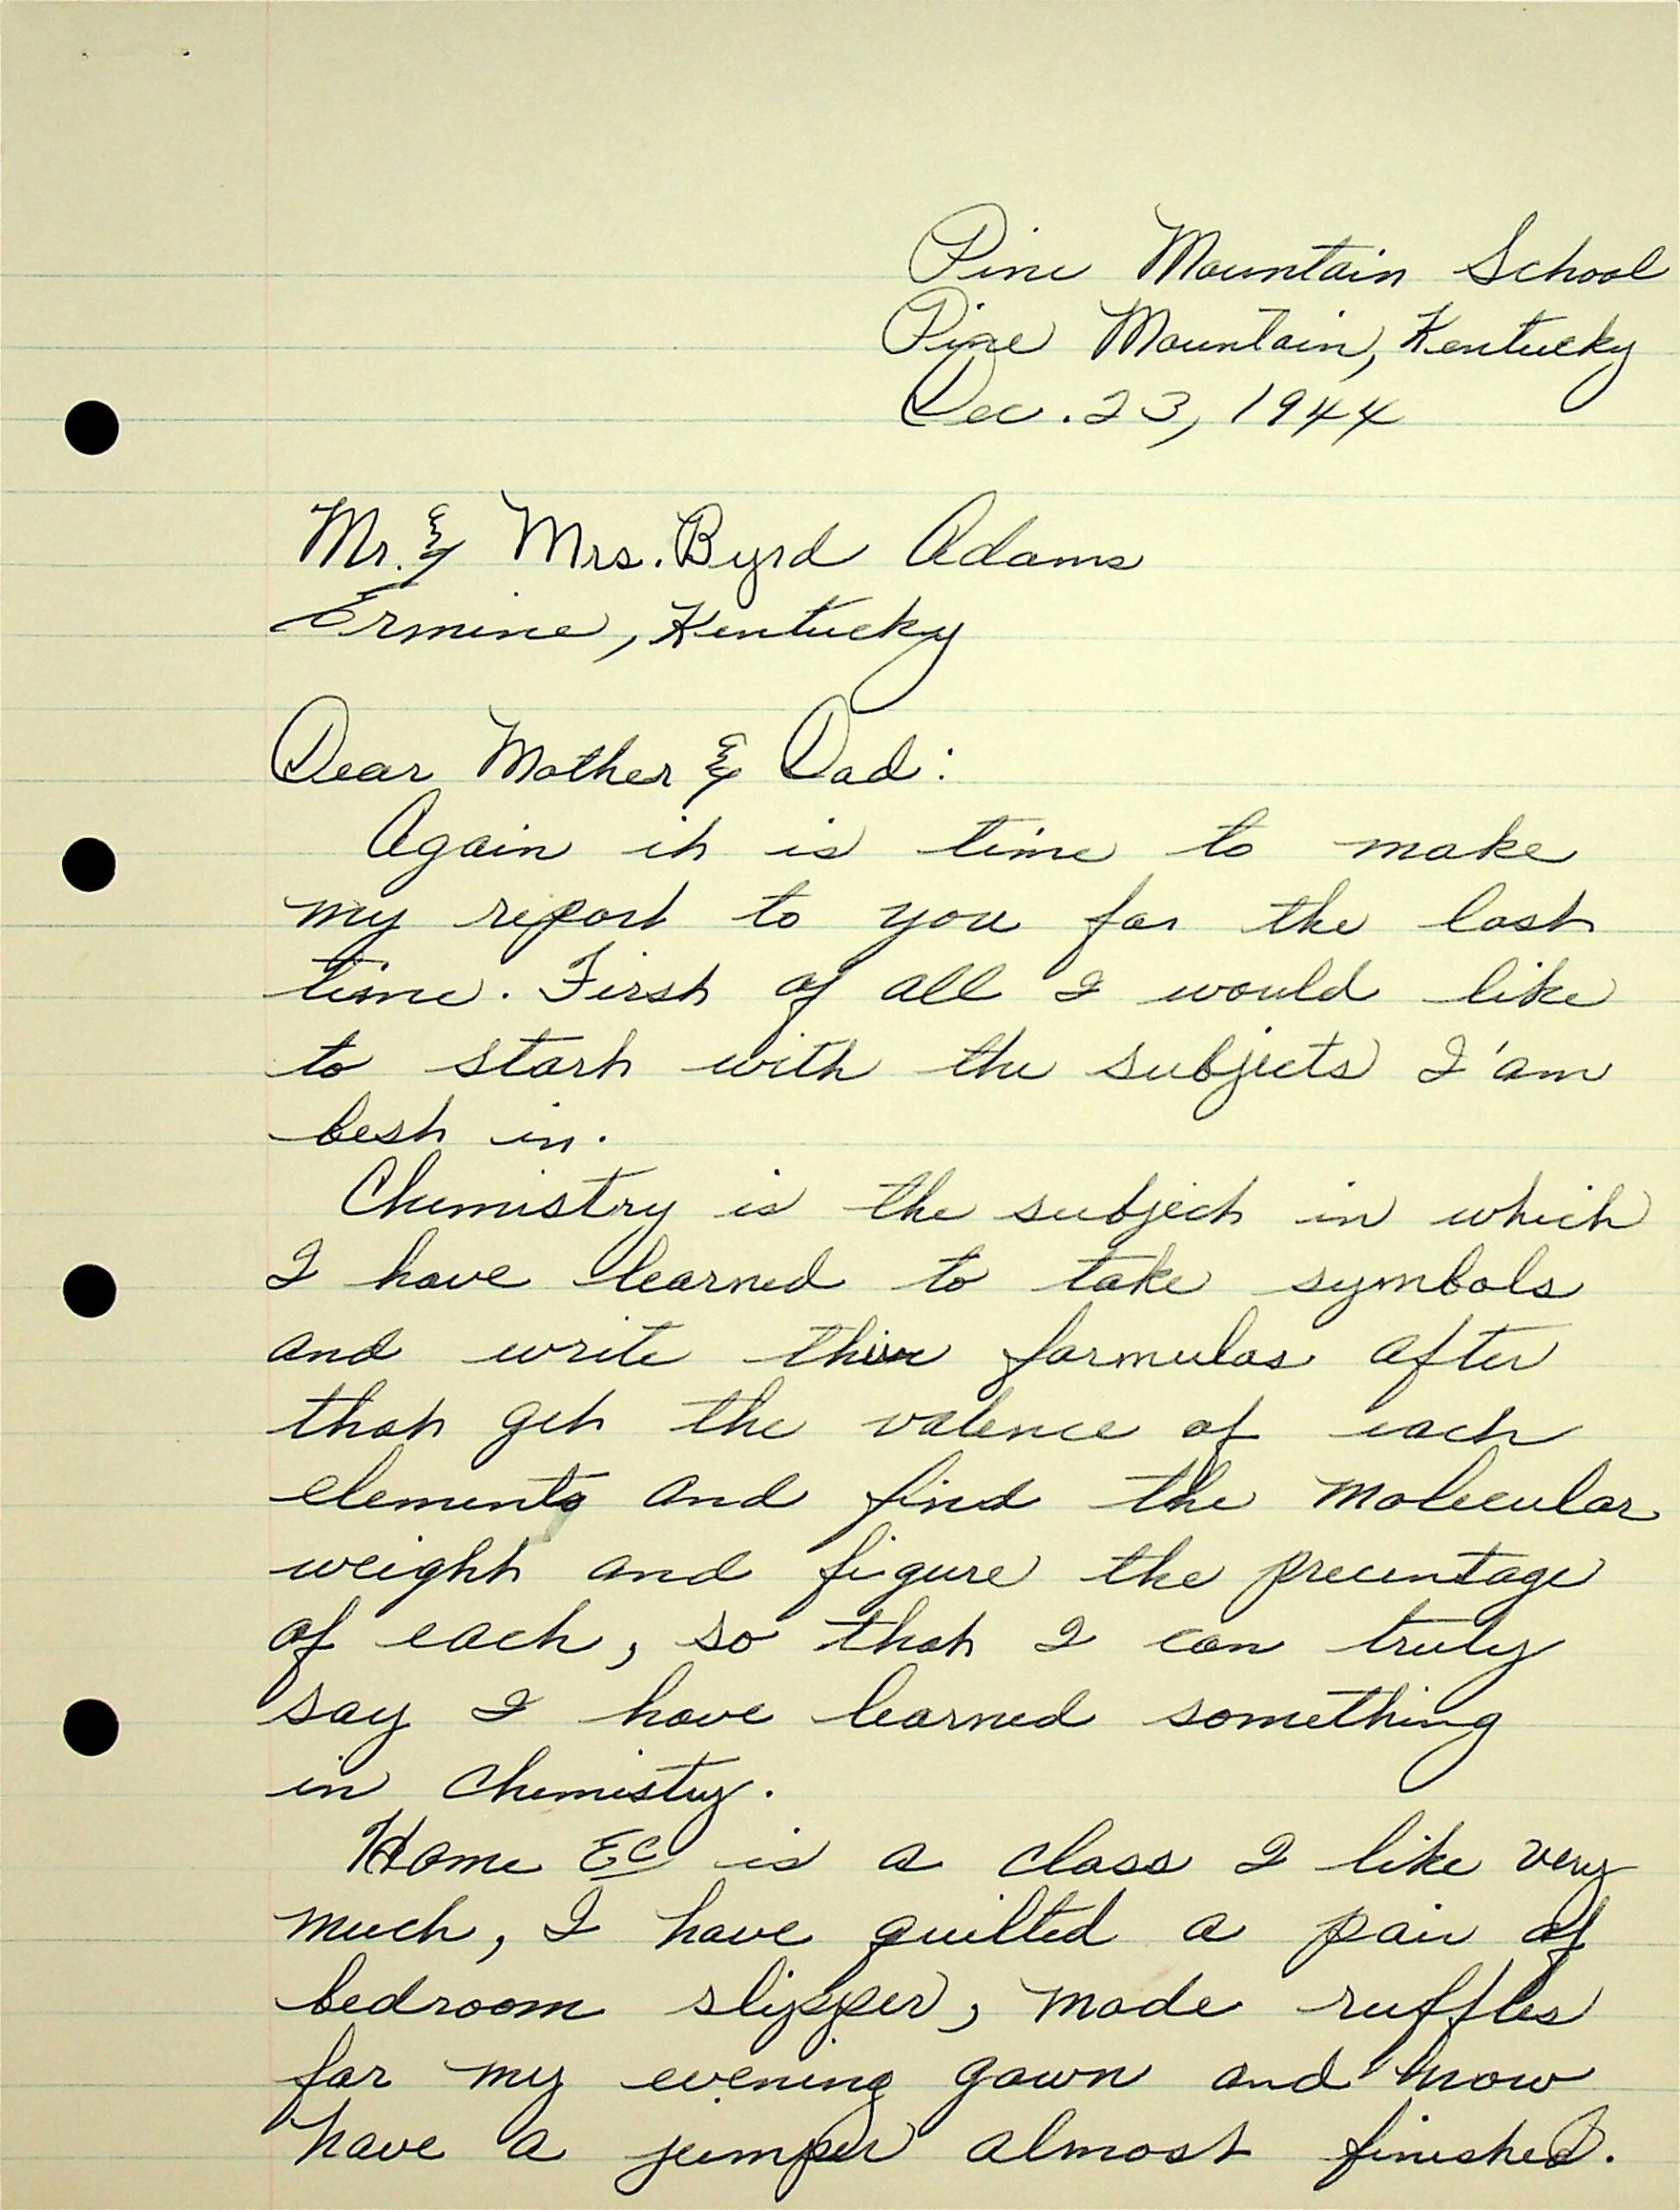 Pine Mountain School
Pine Mountain, Kentucky
Dec. 23, 1944
Mr. & Mrs. Byrd Adams
Ermine, Kentucky
Dear Mother & Dad:
Again it is time to make
my report to you for the last
time. First of all I would like
to start with the subjects I'am
best in.
Chemistry is the subject in which
I have learned to take symbols
and write thier formulas after
that get the valence of each
elements and find the molecular
weight and figure the precentage
of each, so that I can truly
say I have learned something
in Chemistry.
Home Ec is a class I like very
much, I have quilted a pair of
bedroom slipper, made ruffles
for my evening gown and now
have a jumper almost finished.